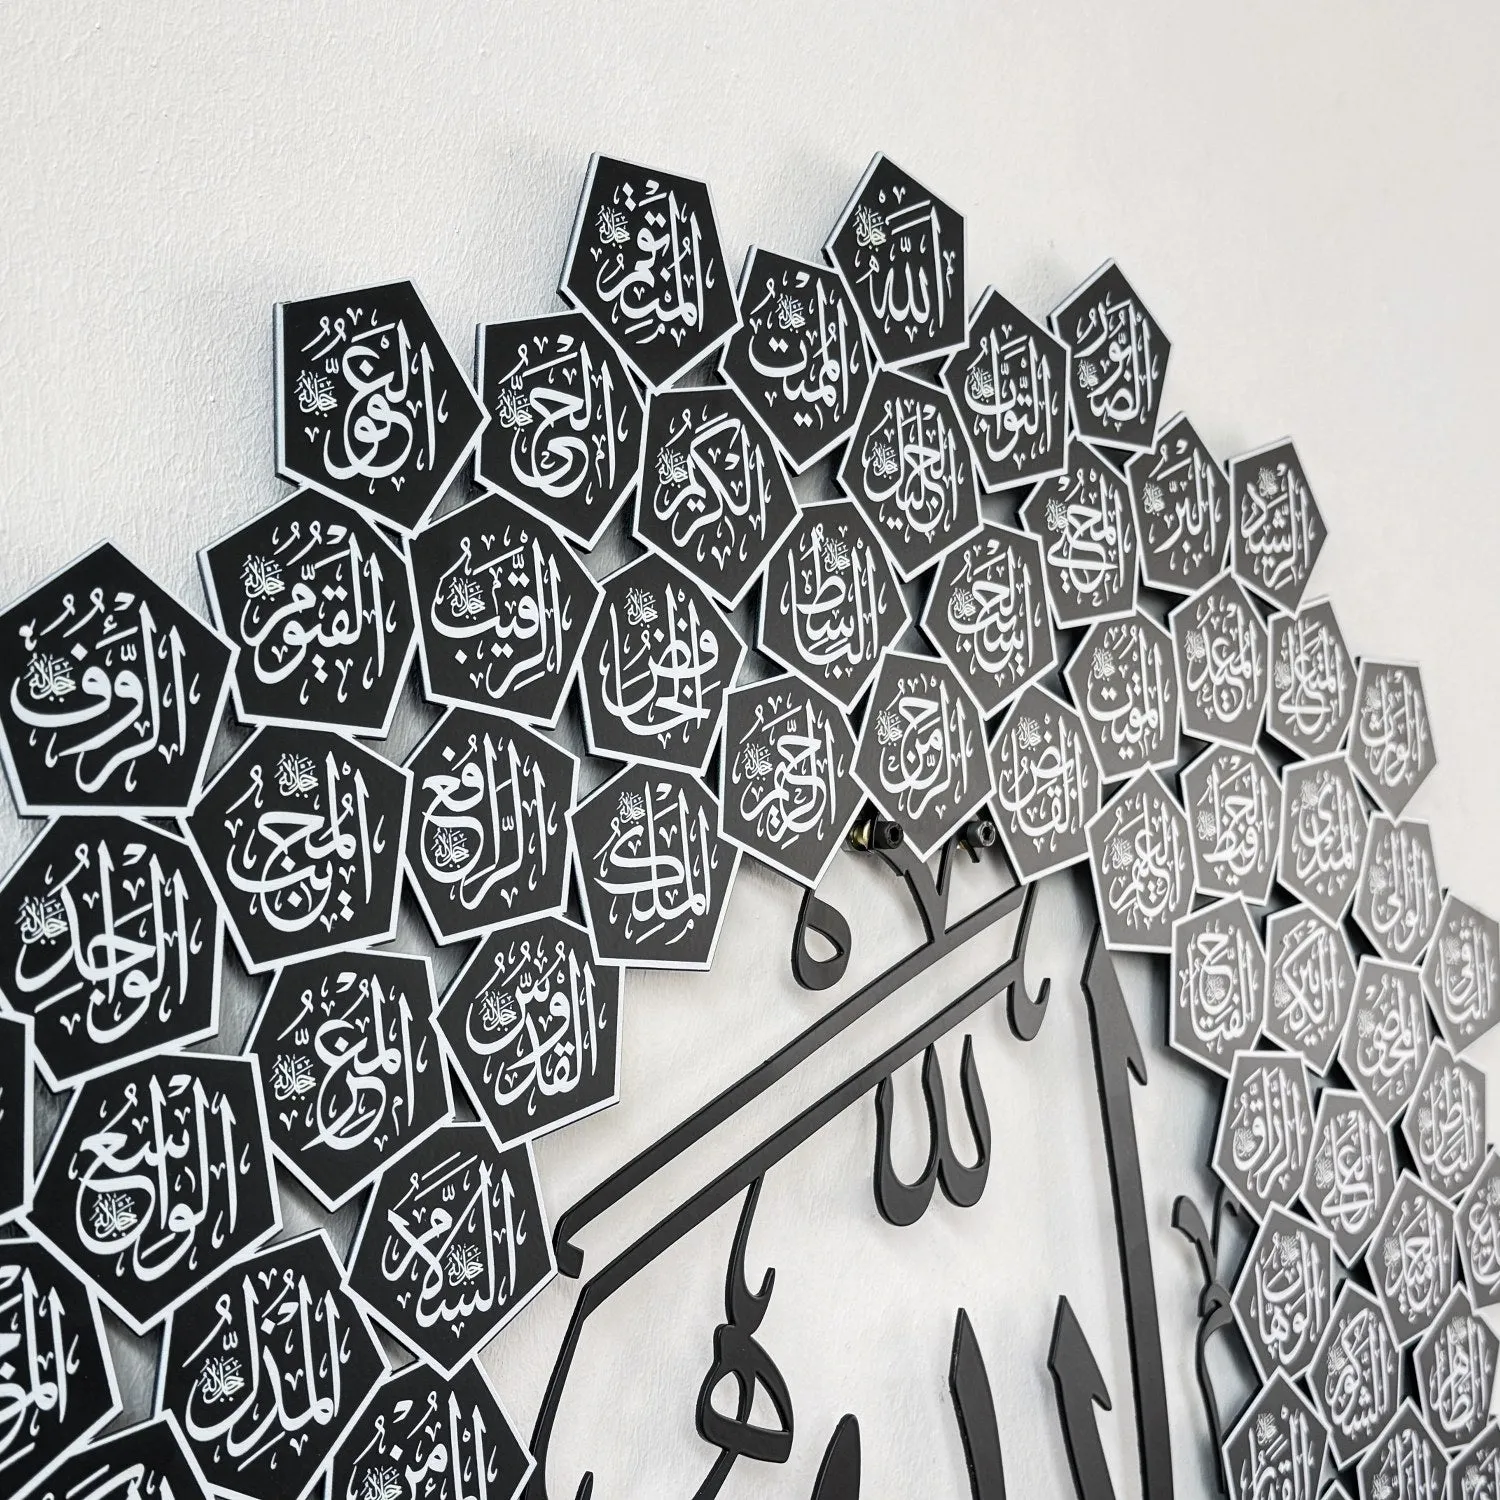 الله جل جلاله
المنتقم جل جلاله
المميت جل جلاله
التواب جل جلاله
الغفور جل جلاله
الحي جل جلاله
الكريم جل جلاله
الجليل جل جلاله
المحيي جل جلاله
البر جل جلاله
الرشيد جل جلاله
القيوم جل جلاله
الرقيب جل جلاله
الخافض جل جلاله
الباسط جل جلاله
الرؤف جل جلاله
المجيب جل جلاله
الرافع جل جلاله
الملك جل جلاله
الرحيم جل جلاله
الرحمن جل جلاله
القابض جل جلاله
المقيت جل جلاله
المعيد جل جلاله
الواجد جل جلاله
القدوس جل جلاله
العليم جل جلاله
الحفيظ جل جلاله
المبدئ جل جلاله
الوالي
الفتاح
الكبير
المحصي
الباقي
الواسع جل جلاله
السلام جل جلاله
الرزاق
العلي
الباطن
المذل جل جلاله
الوهاب
الحميد
الشكور
الظاهر